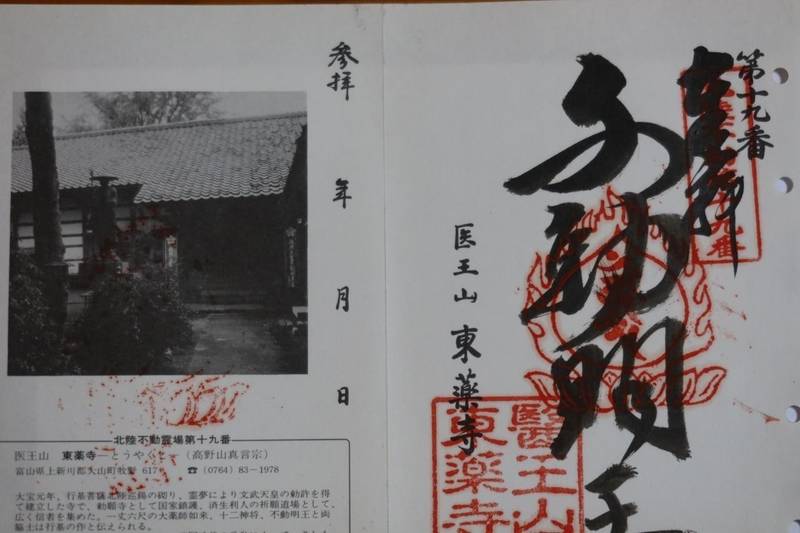 第十九番
奉拝
不動明王
医王山 東薬寺
醫王山
東薬寺
九番
参拝 年 月 日
北陸不動霊場第十九番
医王山 東薬寺 とうやくじ (高野山真言宗)
富山県上新川郡大山町牧野 617 ☎ (0764) 83-1978
大宝元年、行基菩薩北陸巡錫の砌り、霊夢により文武天皇の勅許を得
て建立した寺で、勅願寺として国家鎮護、済生利人の祈願道場として、
広く信者を集めた。一丈六尺の大薬師如来、十二神将、不動明王と両
脇士は行基の作と伝えられる。